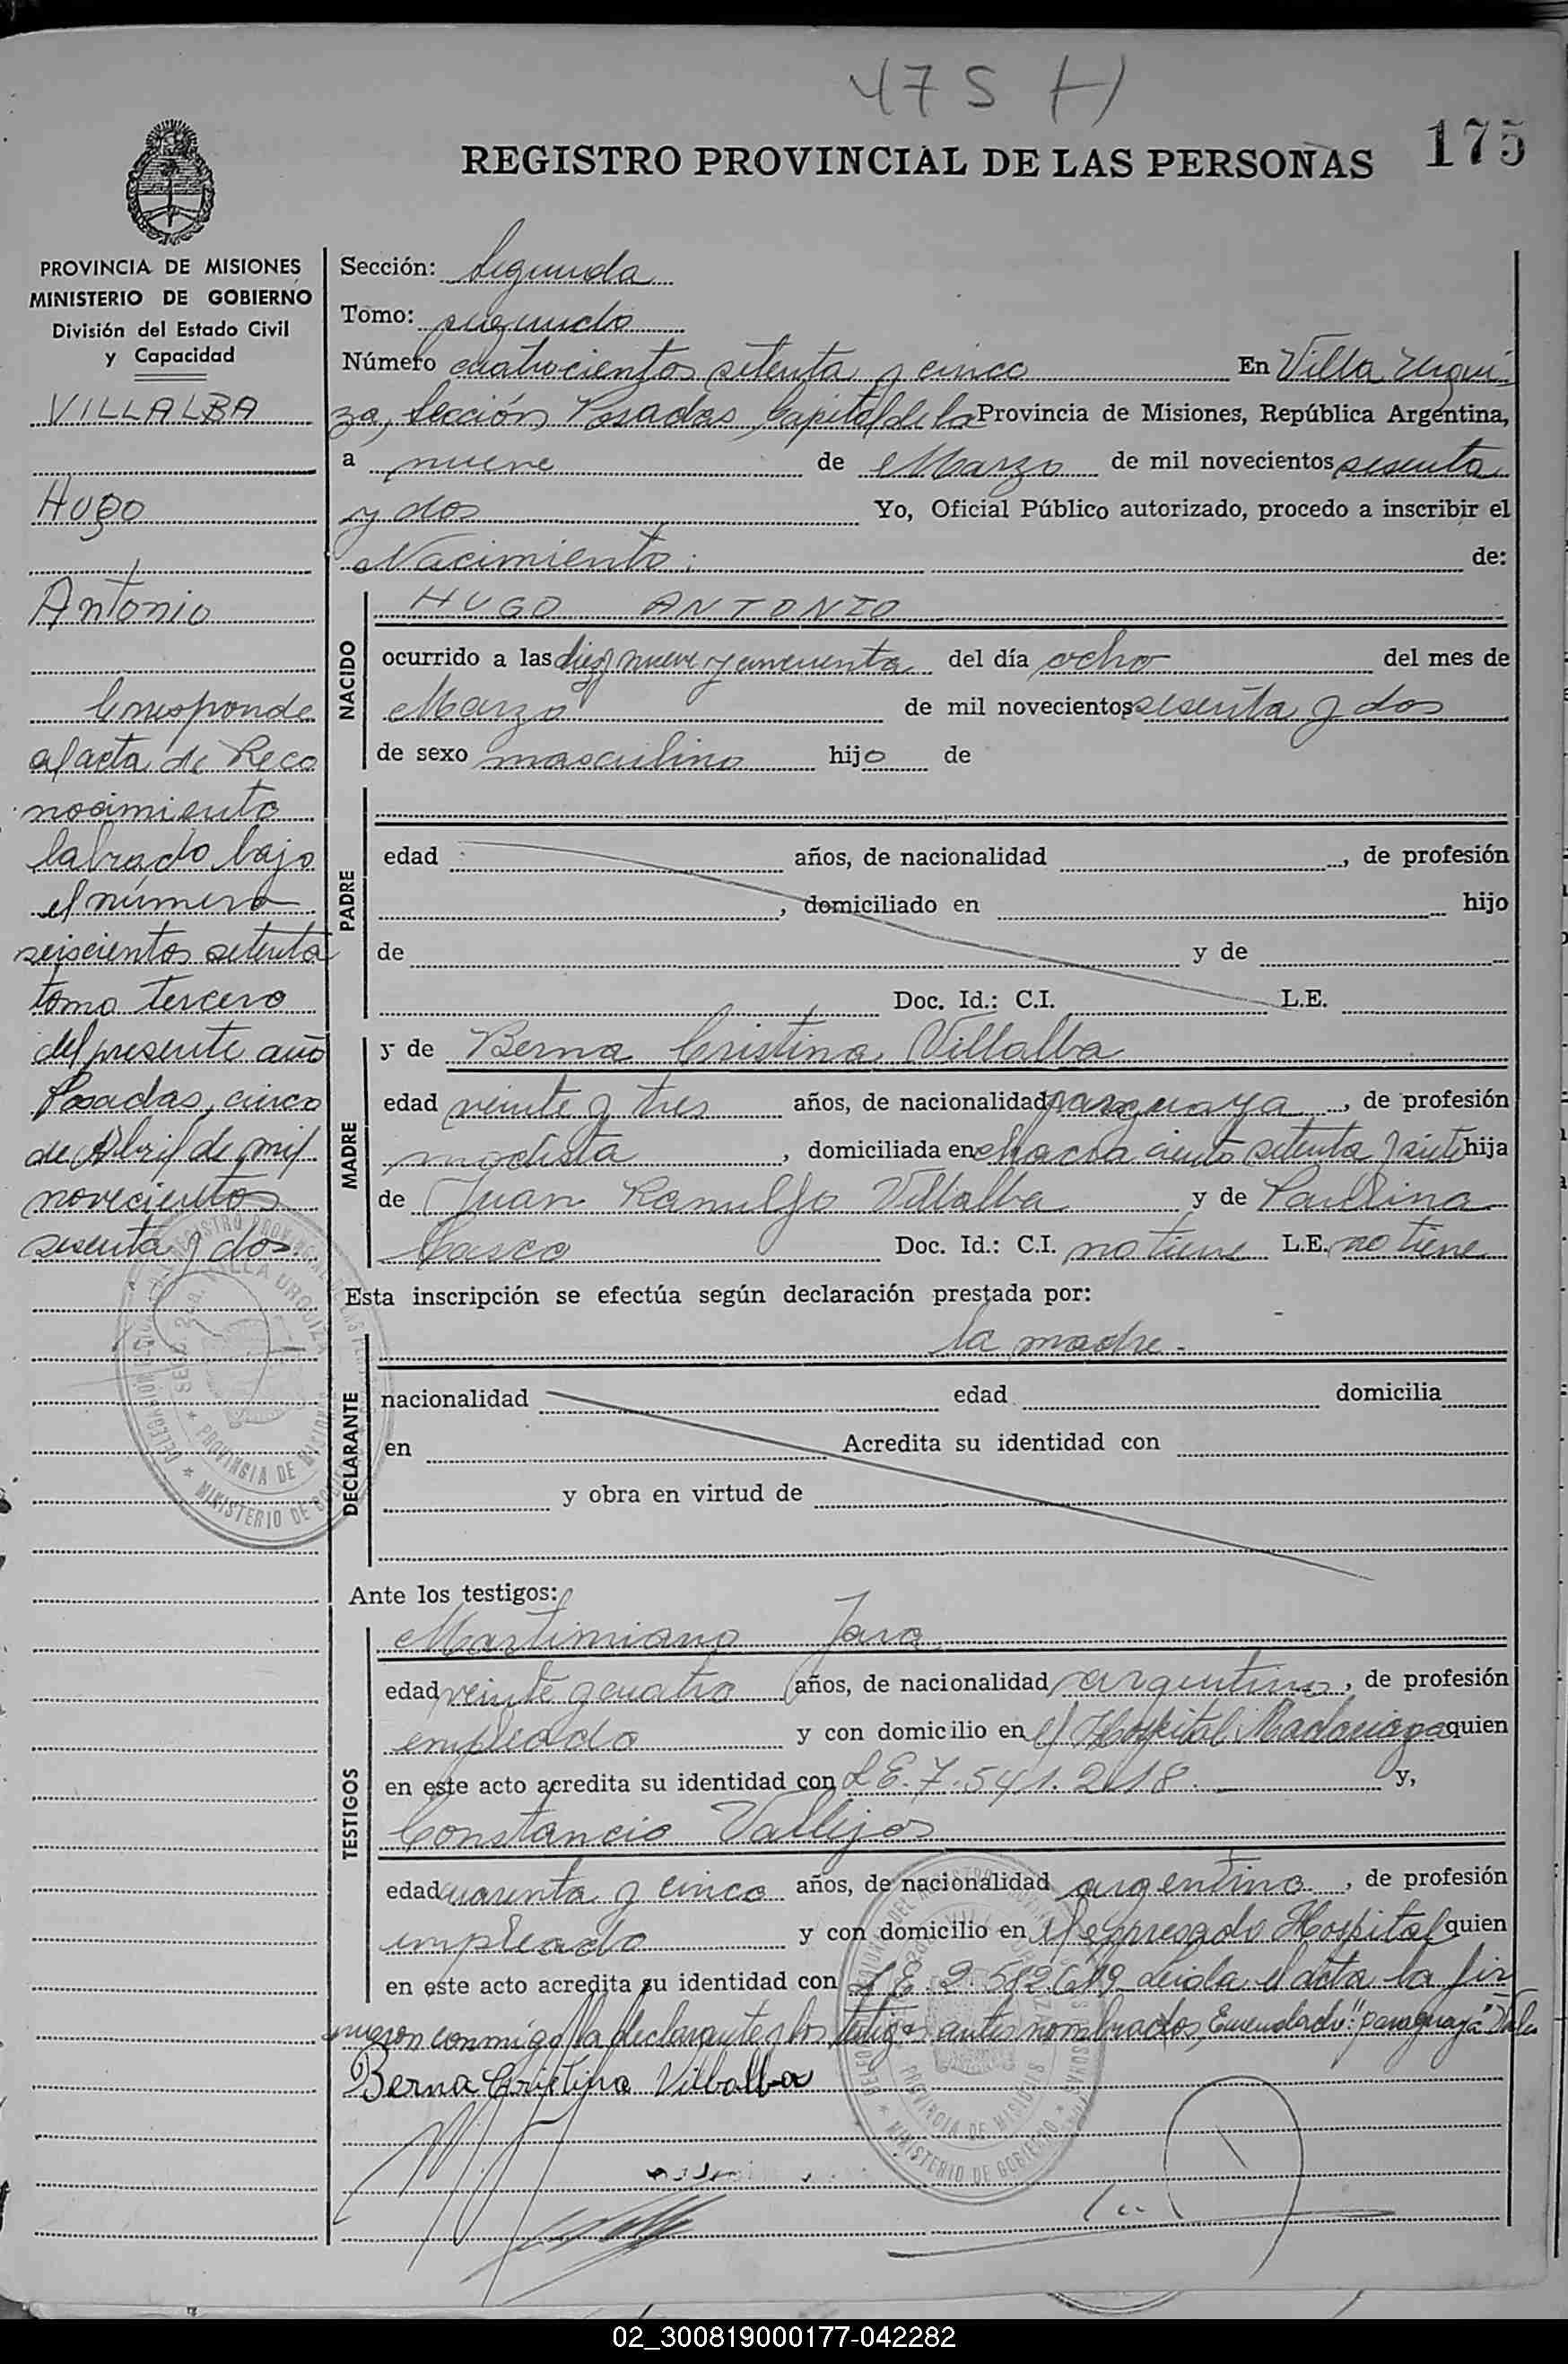 475 H
175
REGISTRO PROVINCIAL DE LAS PERSONAS
PROVINCIA DE MISIONES
MINISTERIO DE GOBIERNO
División del Estado Civil
y Capacidad
VILLALBA
Hugo
Antonio
Corresponde
al acta de Reco
nocimiento
labrado bajo
el número
seiscientos setenta
tomo tercero
del presente año
Posadas, cinco
de Abril de mil
novecientos
sesenta y dos
Sección: Segunda
Tomo: segundo
Número cuatrocientos setenta y cinco En Villa Urqui
za, Sección Posadas, Capital de la Provincia de Misiones, República Argentina,
a nueve de Marzo de mil novecientos sesenta
y dos Yo, Oficial Público autorizado, procedo a inscribir el
Nacimiento: de:
NACIDO
HUGO ANTONIO
ocurrido a las diez nueve y cincuenta del día ocho del mes de
Marzo de mil novecientos sesenta y dos
de sexo masculino hijo de
PADRE
edad años, de nacionalidad , de profesión
, domiciliado en hijo
de y de
Doc. Id.: C.I. L.E.
MADRE
y de Berna Cristina Villalba
edad veinte y tres años, de nacionalidad paraguaya , de profesión
modista , domiciliada en chacra ciento setenta y siete hija
de Juan Ramulfo Villalba y de Paulina
Casco Doc. Id.: C.I. no tiene L.E. no tiene
Esta inscripción se efectúa según declaración prestada por:
DECLARANTE
la madre.-
nacionalidad edad domicilia
en Acredita su identidad con
y obra en virtud de
Ante los testigos:
TESTIGOS
Martimiano Jara
edad veinte y cuatro años, de nacionalidad argentino , de profesión
empleado y con domicilio en el Hospital Madariaga quien
en este acto acredita su identidad con L.E. 7.541.218. y,
Constancio Vallejos
edad cuarenta y cinco años, de nacionalidad argentino , de profesión
empleado y con domicilio en el expresado Hospital quien
en este acto acredita su identidad con L.E. 2.582.619 Leida el acta la fir
maron conmigo la declarante y los testigos antes nombrados, Enmendado: "paraguaya" Vale
Berna Cristina Villalba
02_300819000177-042282